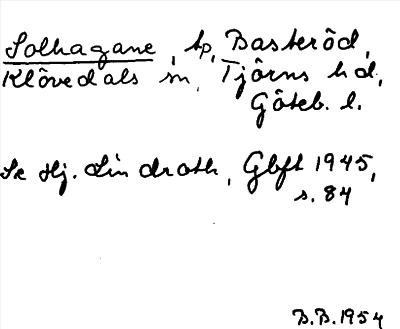 Solhagane, tp, Basteröd,
Klövedals sn, Tjörns hd,
Göteb. l.
Se Hj. Lindroth, Gbft 1945,
s. 84
B.B. 1954